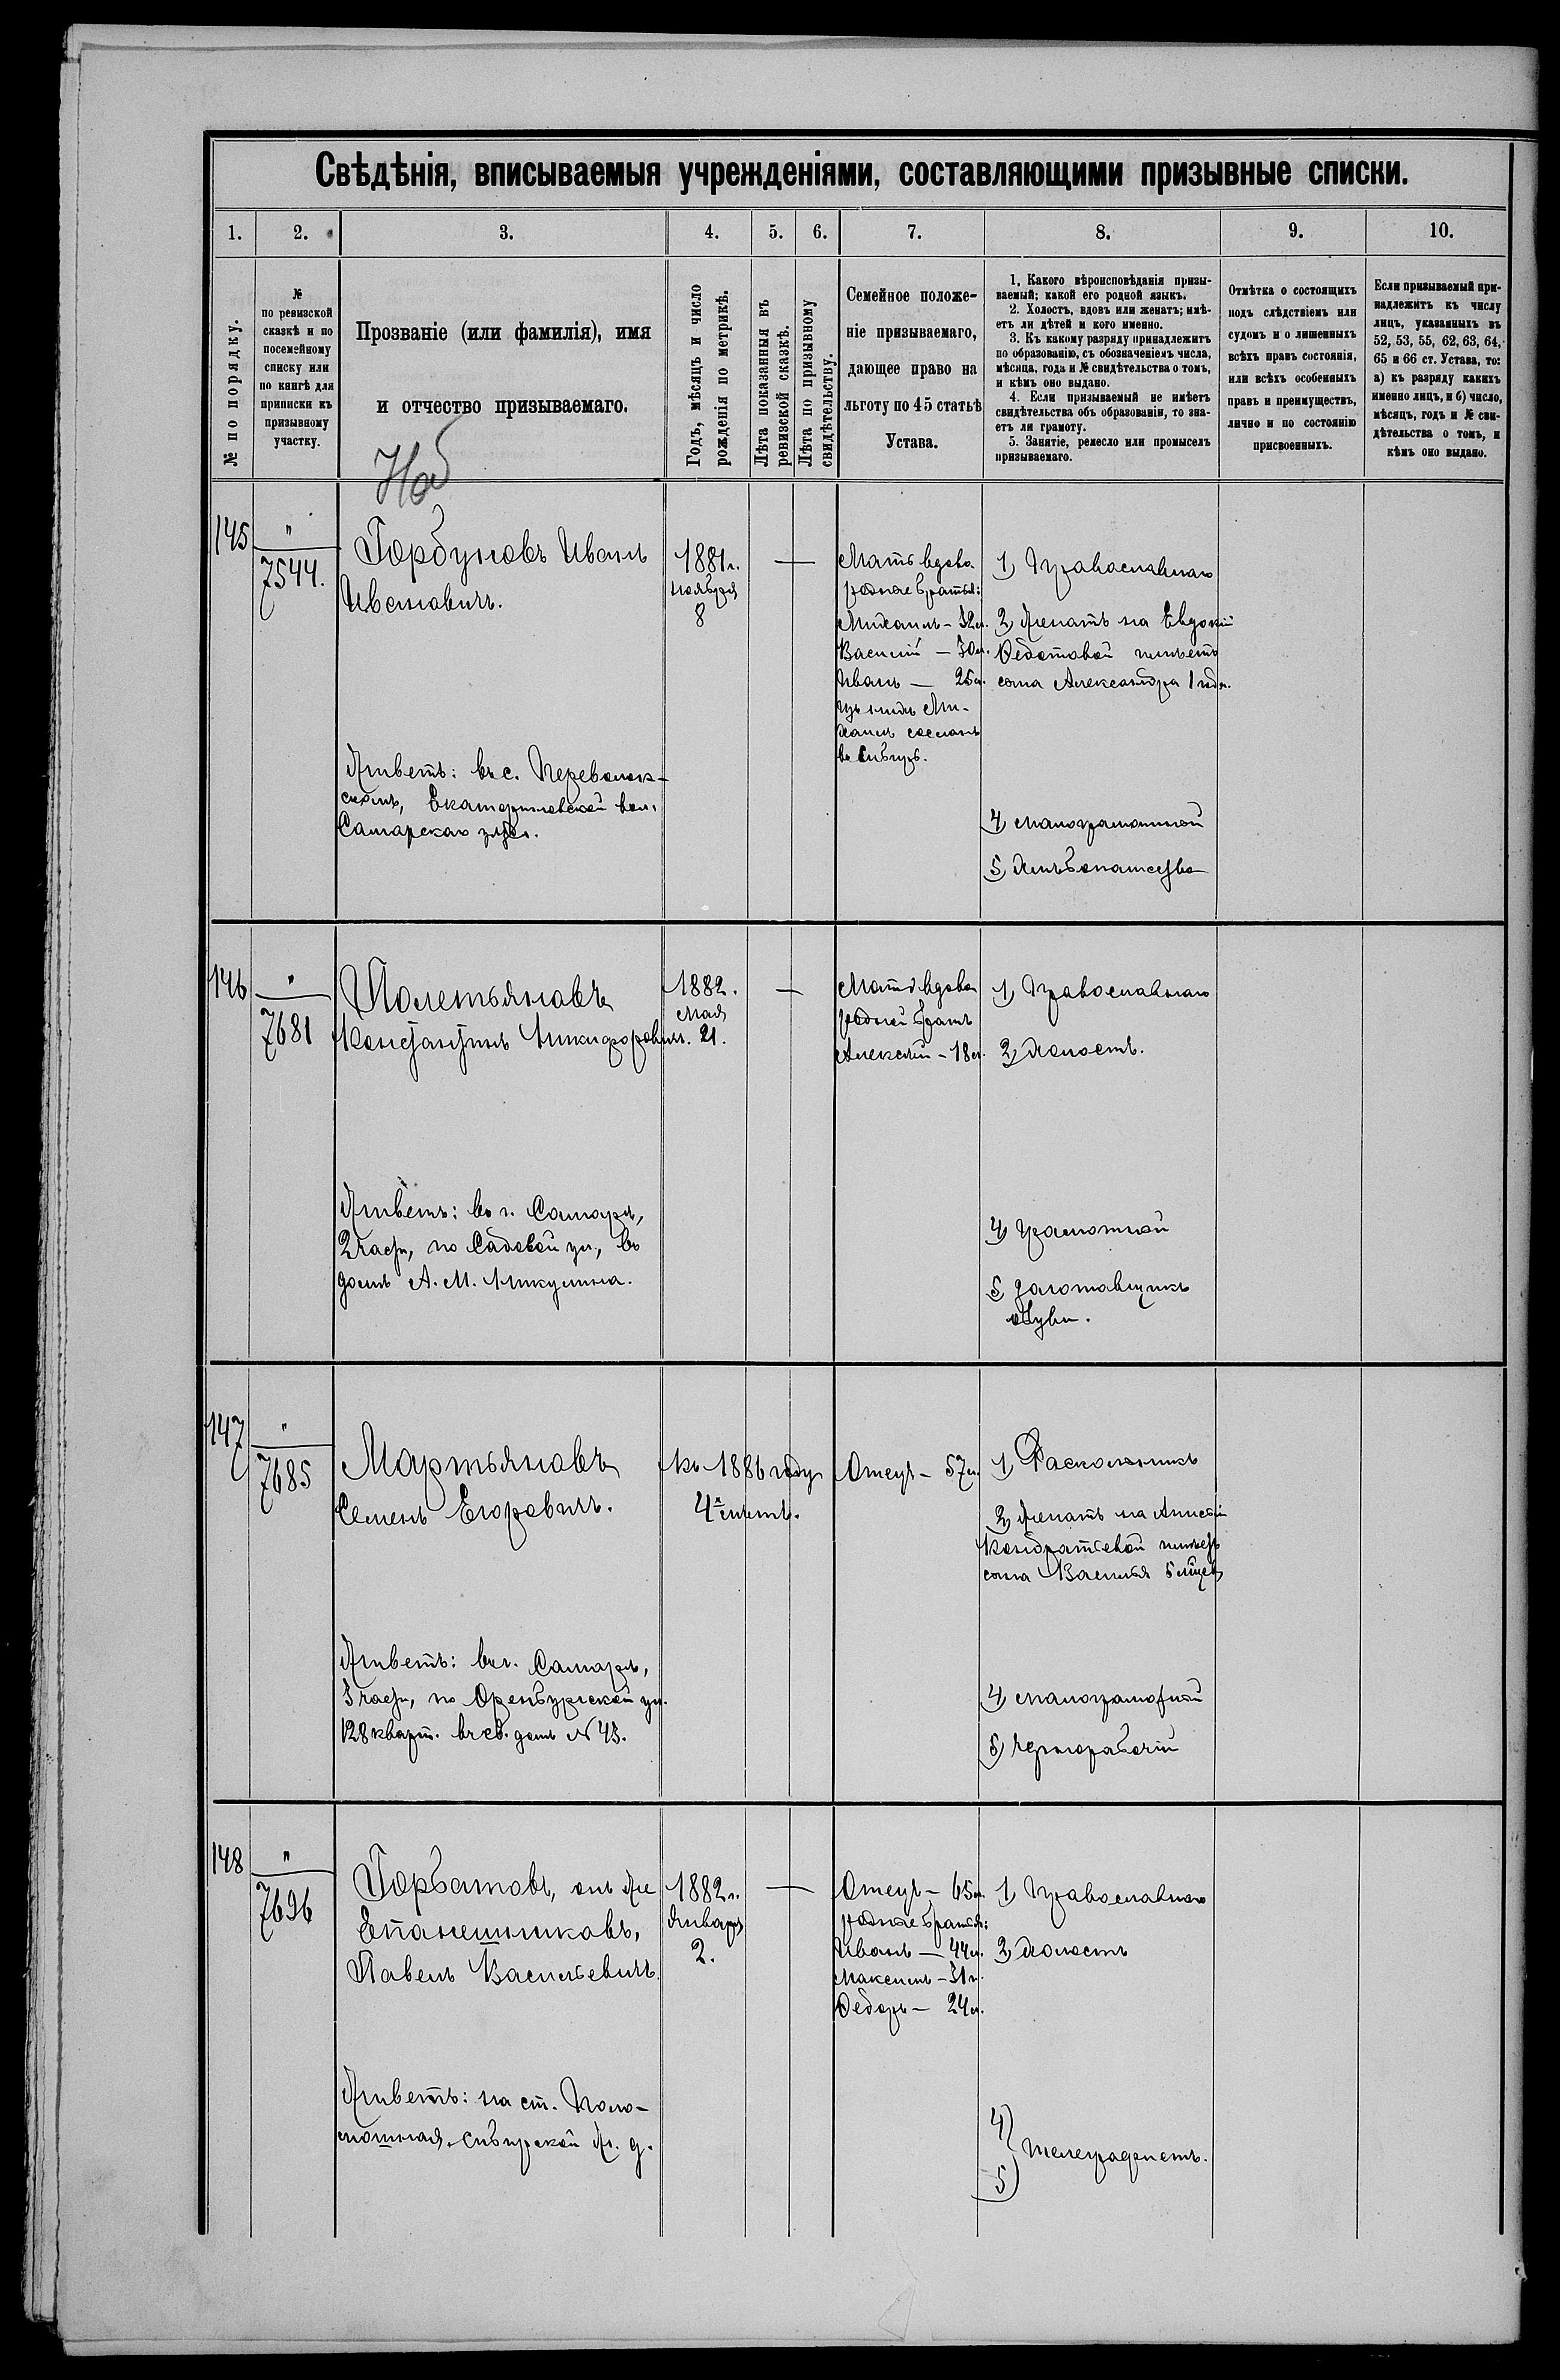 Свѣдѣнія, вписываемыя учрежденіями, составляющими призывные списки.
1. 2. 3. 4. 5. 6. 7. 8. 9. 10.
№ по порядку.
№
по ревизской
сказкѣ и по
посемейному
списку или
по книгѣ для
приписки къ
призывному
участку.
Прозваніе (или фамилія), имя
и отчество призываемаго.
Годъ, мѣсяцъ и число
рожденія по метрикѣ.
Лѣта показанныя въ
ревизской сказкѣ.
Лѣта по призывному
свидѣтельству.
Семейное положе-
ніе призываемаго,
дающее право на
льготу по 45 статьѣ
Устава.
1. Какого вѣроисповѣданія призы-
ваемый; какой его родной языкъ.
2. Холостъ, вдовъ или женатъ; имѣ-
етъ ли дѣтей и кого именно.
3. Къ какому разряду принадлежитъ
по образованію, съ обозначеніемъ числа,
мѣсяца, года и № свидѣтельства о томъ,
и кѣмъ оно выдано.
4. Если призываемый не имѣетъ
свидѣтельства объ образованіи, то зна-
етъ ли грамоту.
5. Занятіе, ремесло или промыселъ
призываемаго.
Отмѣтка о состоящихъ
подъ слѣдствіемъ или
судомъ и о лишенныхъ
всѣхъ правъ состоянія,
или всѣхъ особенныхъ
правъ и преимуществъ,
лично и по состоянію
присвоенныхъ.
Если призываемый при-
надлежитъ къ числу
лицъ, указанныхъ въ
52, 53, 55, 62, 63, 64,
65 и 66 ст. Устава, то:
а) къ разряду какихъ
именно лицъ, и б) число,
мѣсяцъ, годъ и № сви-
дѣтельства о томъ, и
кѣмъ оно выдано.
145
"
7544.
Горбуновъ Иванъ
Ивановичъ.
Живетъ: въ с. Переволок-
скомъ, Екатериновской вол.
Самарскаго уѣзда.
1881 г.
ноября
8
—
Мать вдова
родные братья:
Михаилъ – 32 л.
Василій – 30 л.
Иванъ – 25 л.
изъ нихъ Ми-
хаилъ сосланъ
въ Сибирь.
1) Православнаго
2) Женатъ на Евдокіи
Федотовой имѣетъ
сына Александра 1 года.
4) малограмотный
5) хлѣбопашество
146
"
7681
Полетьяновъ
Константинъ Никифоровичъ.
Живетъ: въ г. Самарѣ,
2 части, по Садовой ул., въ
домѣ А. М. Никулина.
1882.
Мая
21.
—
Мать вдова
родной братъ
Алексѣй – 18 л.
1) Православнаго
2) холостъ.
4) грамотной
5) заготовщикъ
обуви.
147
"
7685
Мартьяновъ
Семенъ Егоровичъ.
Живетъ: въ г. Самарѣ,
3 части, по Оренбургской ул.
128 кварт. въ соб. домѣ № 43.
Къ 1886 году
4х лѣтъ.
Отецъ – 57 л.
1) Раскольникъ
2) Женатъ на Анисьи
Кондратьевой имѣетъ
сына Василья 5 мѣсяцев
4) малограмотной
5) чернорабочій
148
"
7696
Горбатовъ, онъ же
Епанешниковъ,
Павелъ Васильевичъ.
Живетъ: на ст. Поло-
мошная, Сибирской ж. д.
1882 г.
Января
2.
—
Отецъ – 65 л.
родные братья:
Иванъ – 44 л.
Максимъ – 31 г.
Федоръ – 24 л.
1) Православнаго
2) холостъ
4)
5) телеграфистъ.